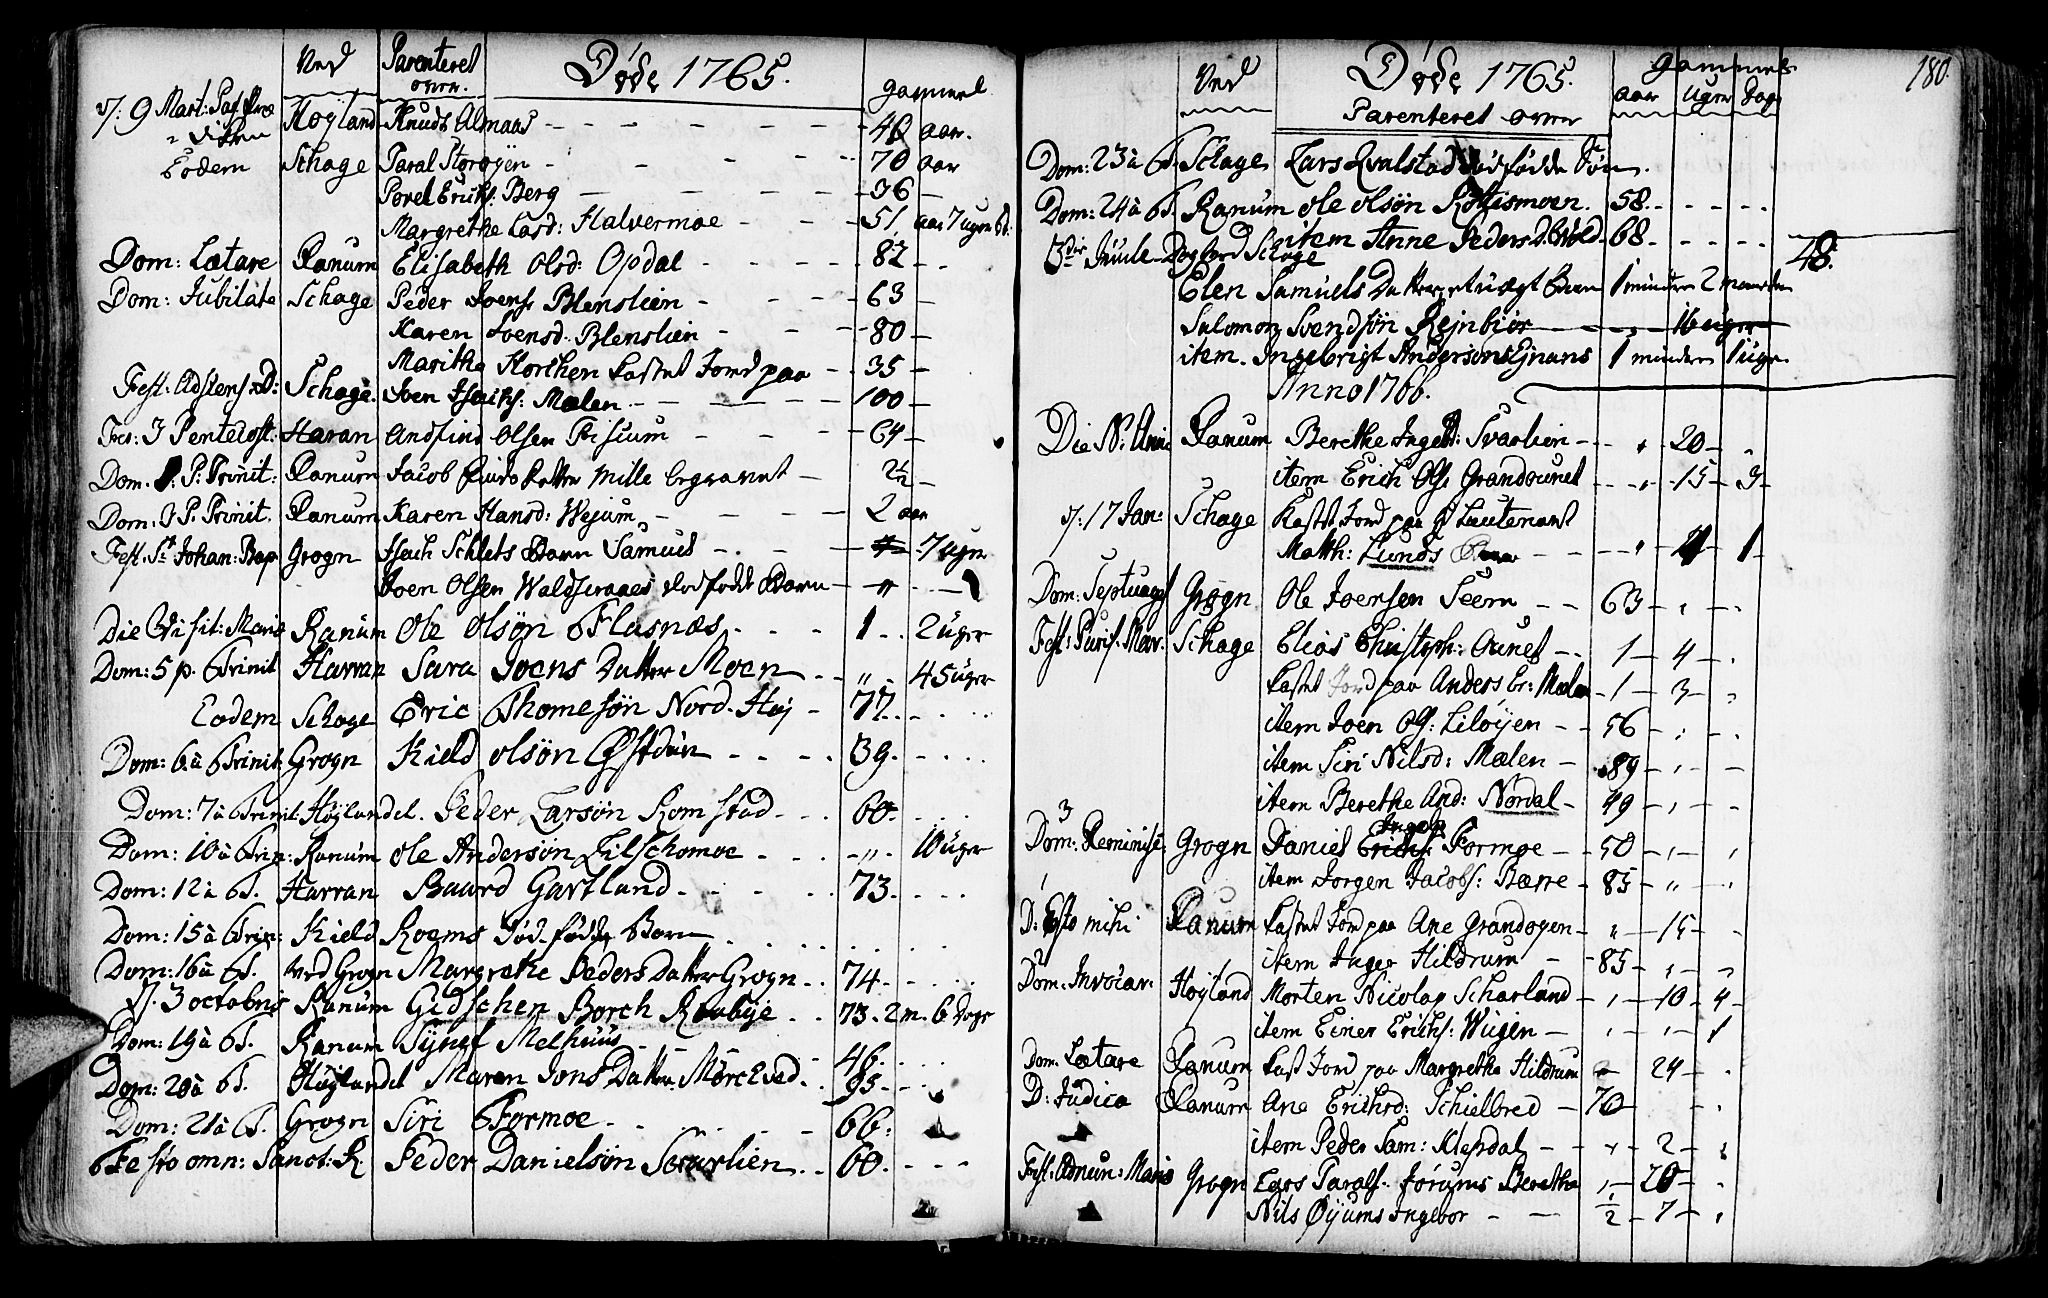 Ved Parenteret over. Døde 1765. gammel
d: 9 Mart: Høyland Knudt Almaas - - - 40 aar.
Eodem Schage Paral Storøyen - - - 70 aar
Povel Erichs: Berg - - - 36 -
Margrethe Lasd: Halvermoe - - - 51, aar 7 uger 6 d.
Dom: Lætare Ranum Elisabeth Olsd: Opdal - - - 82 -
Dom: Jubilate Schage Peder Joens: Blenslien - - - 63 -
Karen Svensd: Blenslien - - - 80 -
Maritha Horchen kastet Jord paa - - 35 -
Schage. Joen Isachs: Mælen - - - 100 -
Fer: 3 Pentecost: Haran Andfind Olsen - - - 64 -
Dom. 1: P: Trinit: Ranum Jacob Mille begravet - 2½ -
Dom: 3 P. Trinit. Ranum Karen Hansd: Wejum - - - 2 aar
Fest. St Johan: Bap Grogn Isach Schlets Barn Samuel - - - 7 uger
Joen Olsen dødfødt Barn - "
Die Visit: Mariæ Ranum Ole Olsøn Flasnæs - - - 1 - - 2 uger
Dom: 5 p. Trinit Harran Sara Joens Datter Moen - - " - 45 uger
Eodem Schage Eric Thomesøn Nord-Høj - 77. - - -
Dom: 6 à Trinit: Grogn Kield Olsøn Østduun - - - 39. - - -
Dom: 7 à Trinit: Høylandet. Peder Larsøn Romstad - - - 60 - - -
Dom: 10 à Trin: Ranum Ole Andersøn Lilschomoe - - - " - 10 uger
Dom: 12 à T. Harran Baard Gartland - - - 73. - - -
Dom: 15 à Trin: Kield Roems Død-fødde Barn - - -
Dom: 16 à T. ved Grogn Margrethe Peders Datter Grogn - - 74 - - -
d. 3 octobris Ranum Gidschen Borch Rowbye - - 73. 2 m. 6 Dage
Dom: 19 à T. Ranum Synef Melhuus - - 46. - - -
Dom: 20 à T. Høylandet Maren Jons Datter Mörcved - - 95 - - -
Dom: 21 à T. Grogn Siri Formoe - - - 66.
Festo omn: Sanct: R. Peder Danielsøn Svarlien - - 60. - - -
180.
Ved Døde 1765. Parenteret over gammel aar Uger Dage
Dom: 23 à T. Schage Lars Qvalstad dødfødde Søn.
Dom: 24 à T. Ranum Ole Olsøn Røttismoen. 58. - - -
item Anne Peders D. 68. - - -
3die Juule-Dag ved Schage 48.
Elen Samuels Datter 1 minder 2 maander
Salomon Svendsøn Rejnbiör - - - 16 uger
item. Ingebrigt Andersøns Ejnans 1 minder 1 uge.
Anno 1766.
Die N: Anni Ranum Berethe Ingebr: Svarlien - - " - 20 - "
item Erich Ols: Grandaunet - - " - 15 - 3 -
d. 17 Jan: Schage Kastet Jord paa Lieutenant
Matth: Lunds Barn - - - " - 1 -
Dom: Septuages Grogn Ole Joensen Seem - - 63 - " - "
Fest: Purif: Mar. Schage Elias Christoph: Aunet - - 1 - 4 - "
kastet Jord paa Anders Er: Mælen - 1 - 3 - "
item Joen Ols: Liløyen - 56 - " - "
item Siri Nilsd: Mælen - 89 - " -
item Berethe And: Nordal - 49 - " -
3 Dom: Reminisc: Grogn Daniel Ingebr Formoe - - 50 - " - "
item Jorgen Jacobs: Bærre - 85 - " - "
1 D: Esto mihi Ranum kastet Jord paa Ane Grandøyen - " - 15 - "
item Inger Hildrum - - 85 - " - "
Dom: Invocav. Høyland Morten Nicolay Scharland - " - 10 - 4 -
item Einer Erichs: Wiigen - " - " - 1
Dom: Lætare Ranum kast Jord paa Margretha Hildrum - 24 - "
D: Judica Ranum Ane Erichsd: Schielbred - 70 - "
item Peder Sam: Klepdal - - " - 2 - "
Fest: Anun: Mariæ Grogn Lars Taralf: Jörums Beretha " - 20 - "
Nils Øyums Ingebor - - ½ - 7 - "